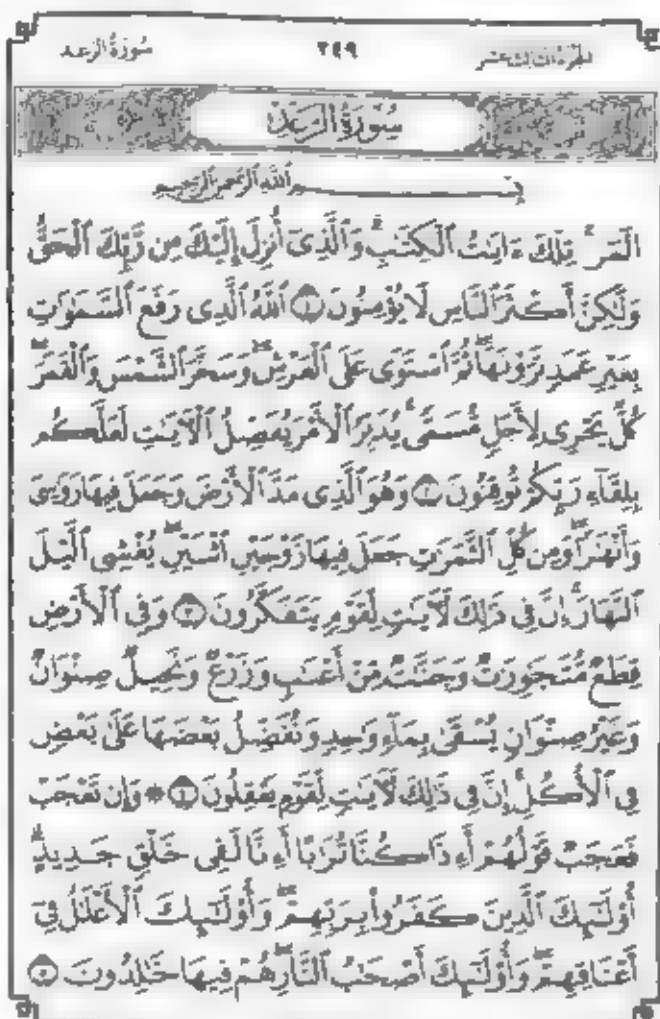 سُورَةُ الرَّعْدِ ٢٤٩ الجُزْءُ الثَّالِثَ عَشَرَ
سُورَةُ الرَّعْدِ
بِسْمِ ٱللَّهِ ٱلرَّحْمَٰنِ ٱلرَّحِيمِ
الٓمٓر ۚ تِلْكَ ءَايَٰتُ ٱلْكِتَٰبِ ۗ وَٱلَّذِىٓ أُنزِلَ إِلَيْكَ مِن رَّبِّكَ ٱلْحَقُّ
وَلَٰكِنَّ أَكْثَرَ ٱلنَّاسِ لَا يُؤْمِنُونَ ١ ٱللَّهُ ٱلَّذِى رَفَعَ ٱلسَّمَٰوَٰتِ
بِغَيْرِ عَمَدٍ تَرَوْنَهَا ۖ ثُمَّ ٱسْتَوَىٰ عَلَى ٱلْعَرْشِ ۖ وَسَخَّرَ ٱلشَّمْسَ وَٱلْقَمَرَ ۖ
كُلٌّ يَجْرِى لِأَجَلٍ مُّسَمًّى ۚ يُدَبِّرُ ٱلْأَمْرَ يُفَصِّلُ ٱلْءَايَٰتِ لَعَلَّكُم
بِلِقَآءِ رَبِّكُمْ تُوقِنُونَ ٢ وَهُوَ ٱلَّذِى مَدَّ ٱلْأَرْضَ وَجَعَلَ فِيهَا رَوَٰسِىَ
وَأَنْهَٰرًا ۖ وَمِن كُلِّ ٱلثَّمَرَٰتِ جَعَلَ فِيهَا زَوْجَيْنِ ٱثْنَيْنِ ۖ يُغْشِى ٱلَّيْلَ
ٱلنَّهَارَ ۚ إِنَّ فِى ذَٰلِكَ لَءَايَٰتٍ لِّقَوْمٍ يَتَفَكَّرُونَ ٣ وَفِى ٱلْأَرْضِ
قِطَعٌ مُّتَجَٰوِرَٰتٌ وَجَنَّٰتٌ مِّنْ أَعْنَٰبٍ وَزَرْعٌ وَنَخِيلٌ صِنْوَانٌ
وَغَيْرُ صِنْوَانٍ يُسْقَىٰ بِمَآءٍ وَٰحِدٍ وَنُفَضِّلُ بَعْضَهَا عَلَىٰ بَعْضٍ
فِى ٱلْأُكُلِ ۚ إِنَّ فِى ذَٰلِكَ لَءَايَٰتٍ لِّقَوْمٍ يَعْقِلُونَ ٤ ۞ وَإِن تَعْجَبْ
فَعَجَبٌ قَوْلُهُمْ أَءِذَا كُنَّا تُرَٰبًا أَءِنَّا لَفِى خَلْقٍ جَدِيدٍ ۗ
أُو۟لَٰٓئِكَ ٱلَّذِينَ كَفَرُوا۟ بِرَبِّهِمْ ۖ وَأُو۟لَٰٓئِكَ ٱلْأَغْلَٰلُ فِىٓ
أَعْنَاقِهِمْ ۖ وَأُو۟لَٰٓئِكَ أَصْحَٰبُ ٱلنَّارِ ۖ هُمْ فِيهَا خَٰلِدُونَ ٥